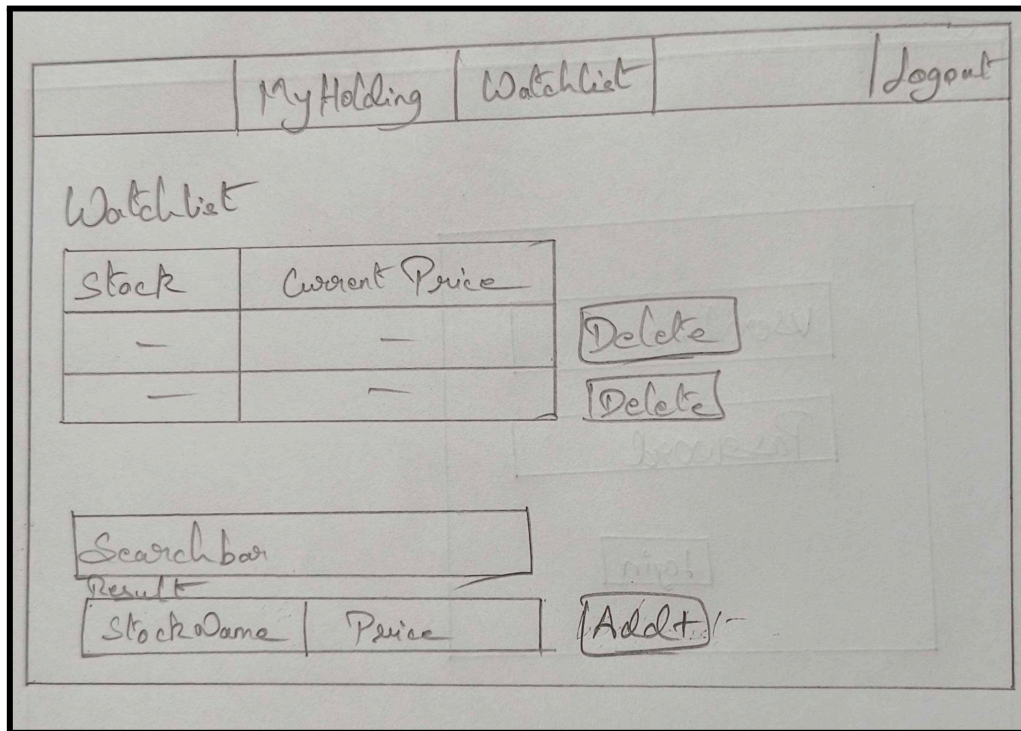 My Holding Watchlist Logout
Watchlist
Stock Current Price
— — Delete
— — Delete
Searchbar
Result
StockName Price Add+